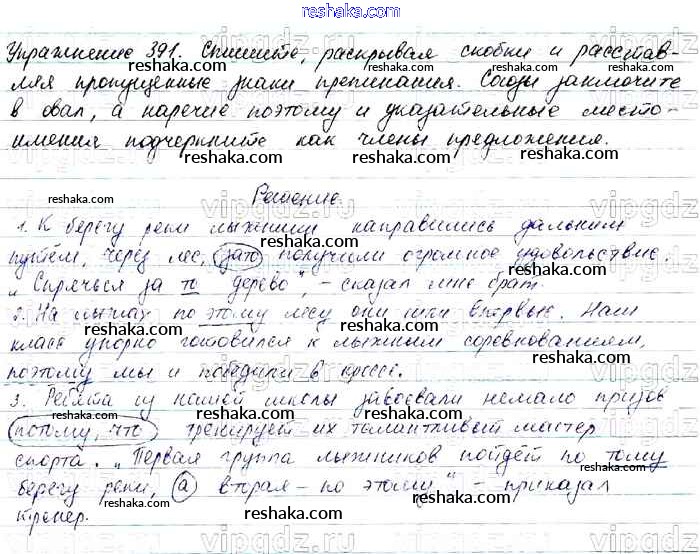 reshaka.com
Упражнение 391. Спишите, раскрывая скобки и расстав-
ляя пропущенные знаки препинания. Союзы заключите
в овал, а наречие поэтому и указательные место-
имения подчеркните как члены предложения.
Решение
1. К берегу реки лыжники направились дальним
путём, через лес, зато получили огромное удовольствие.
„Спрячься за то дерево", – сказал мне брат.
2. На лыжах по этому лесу они шли впервые. Наш
класс упорно готовился к лыжным соревнованиям,
поэтому мы и победили в кроссе.
3. Ребята из нашей школы завоевали немало призов
потому, что тренирует их талантливый мастер
спорта. „Первая группа лыжников пойдёт по тому
берегу реки, а вторая – по этому" – приказал
тренер.
reshaka.com